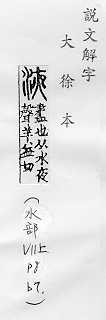 說文解字
大徐本
液 𧗁也从水夜
聲羊益切
(水部 VII上 P8 b7.)